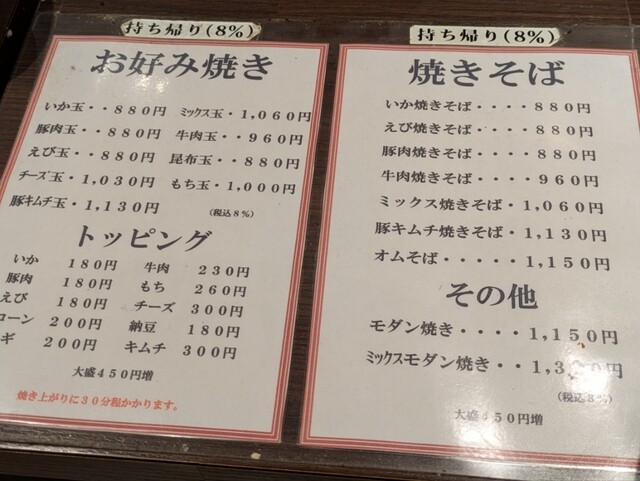 持ち帰り(8%)
お好み焼き
いか玉・・880円 ミックス玉・1,060円
豚肉玉・・880円 牛肉玉・・960円
えび玉・・880円 昆布玉・・880円
チーズ玉・1,030円 もち玉・1,000円
豚キムチ玉・1,130円 (税込8%)
トッピング
いか 180円 牛肉 230円
豚肉 180円 もち 260円
えび 180円 チーズ 300円
コーン 200円 納豆 180円
ギ 200円 キムチ 300円
大盛450円増
焼き上がりに30分程かかります。
持ち帰り(8%)
焼きそば
いか焼きそば・・・・880円
えび焼きそば・・・・880円
豚肉焼きそば・・・・880円
牛肉焼きそば・・・・960円
ミックス焼きそば・1,060円
豚キムチ焼きそば・1,130円
オムそば・・・・・1,150円
その他
モダン焼き・・・・1,150円
ミックスモダン焼き・・
(税込8%)
大盛450円増